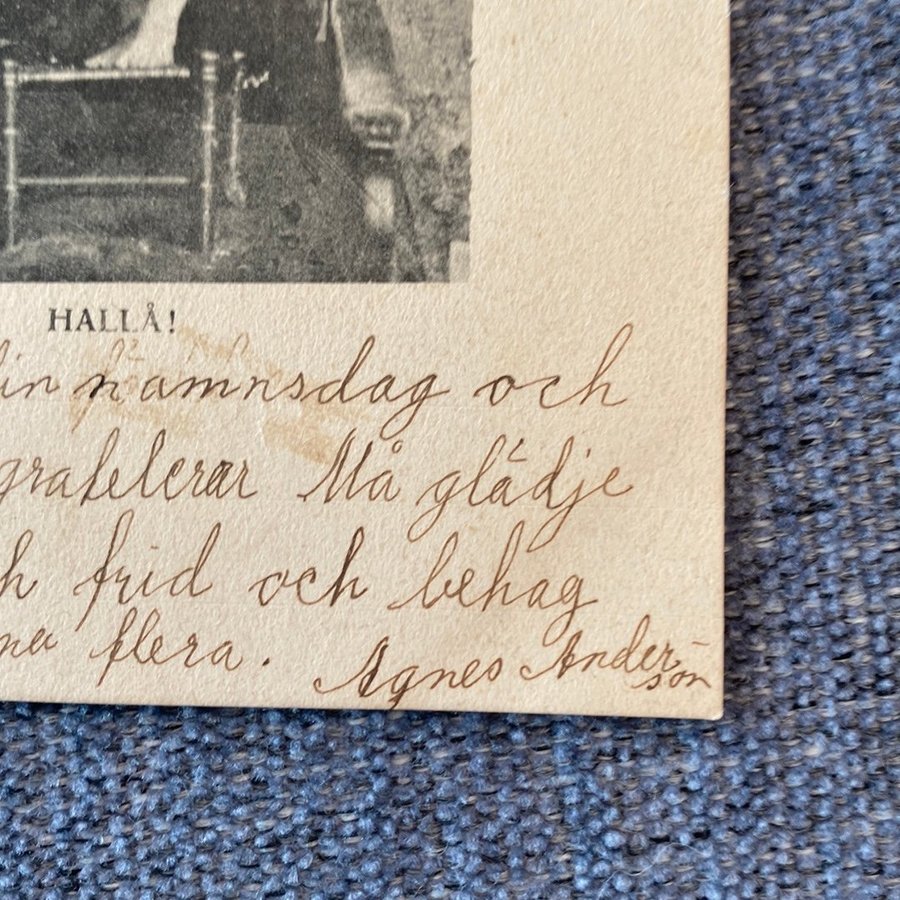 HALLÅ!
in namnsdag och
gratelerar Må glädje
h frid och behag
na flera. Agnes Ander-
son